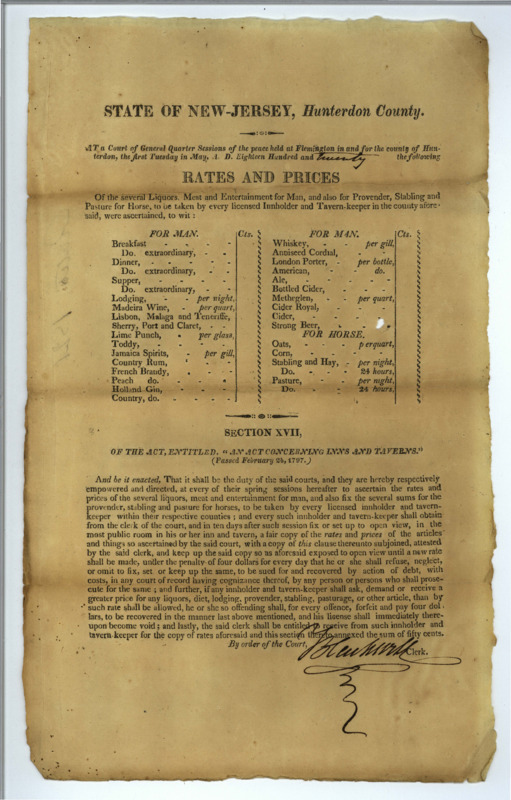 STATE OF NEW-JERSEY, Hunterdon County.
AT a Court of General Quarter Sessions of the peace held at Flemington in and for the county of Hun-
terdon, the first Tuesday in May, A. D. Eighteen Hundred and twenty the following
RATES AND PRICES
Of the several Liquors, Meat and Entertainment for Man, and also for Provender, Stabling and
Pasture for Horse, to be taken by every licensed Innholder and Tavern-keeper in the county afore-
said, were ascertained, to wit:
FOR MAN. Cts.
Breakfast - - - -
Do. extraordinary, - -
Dinner, - - - -
Do. extraordinary, - -
Supper, - - - -
Do. extraordinary, - -
Lodging, - - per night,
Madeira Wine, - per quart,
Lisbon, Malaga and Teneriffe,
Sherry, Port and Claret, - -
Lime Punch, - per glass,
Toddy, - - - -
Jamaica Spirits, - per gill,
Country Rum, - - -
French Brandy, - - -
Peach do. - - -
Holland Gin, - - -
Country, do. - - -
FOR MAN. Cts.
Whiskey, - - per gill,
Anniseed Cordial, - -
London Porter, - per bottle,
American, - - do.
Ale, - - - -
Bottled Cider, - - -
Metheglen, - - per quart,
Cider Royal, - - -
Cider, - - - -
Strong Beer, - - -
FOR HORSE.
Oats, - - per quart,
Corn, - - - -
Stabling and Hay, - per night,
Do. - - 24 hours,
Pasture, - - per night,
Do. - - 24 hours,
SECTION XVII,
OF THE ACT, ENTITLED, "AN ACT CONCERNING INNS AND TAVERNS."
(Passed February 24, 1797.)
And be it enacted, That it shall be the duty of the said courts, and they are hereby respectively
empowered and directed, at every of their spring sessions hereafter to ascertain the rates and
prices of the several liquors, meat and entertainment for man, and also fix the several sums for the
provender, stabling and pasture for horses, to be taken by every licensed innholder and tavern-
keeper within their respective counties; and every such innholder and tavern-keeper shall obtain
from the clerk of the court, and in ten days after such session fix or set up to open view, in the
most public room in his or her inn and tavern, a fair copy of the rates and prices of the articles
and things so ascertained by the said court, with a copy of this clause thereunto subjoined, attested
by the said clerk, and keep up the said copy so as aforesaid exposed to open view until a new rate
shall be made, under the penalty of four dollars for every day that he or she shall refuse, neglect,
or omit to fix, set or keep up the same, to be sued for and recovered by action of debt, with
costs, in any court of record having cognizance thereof, by any person or persons who shall prose-
cute for the same; and further, if any innholder and tavern-keeper shall ask, demand or receive a
greater price for any liquors, diet, lodging, provender, stabling, pasturage, or other article, than by
such rate shall be allowed, he or she so offending shall, for every offence, forfeit and pay four dol-
lars, to be recovered in the manner last above mentioned, and his license shall immediately there-
upon become void; and lastly, the said clerk shall be entitled to receive from such innholder and
tavern-keeper for the copy of rates aforesaid and this section thereto annexed the sum of fifty cents.
By order of the Court,
Clerk.